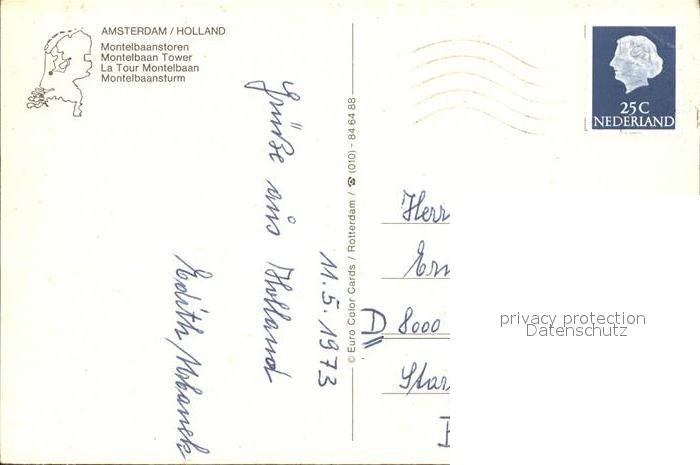 AMSTERDAM / HOLLAND
Montelbaanstoren
Montelbaan Tower
La Tour Montelbaan
Montelbaansturm
25 C
NEDERLAND
11.5.1973
Grüße aus Holland
Edith
© Euro Color Cards / Rotterdam / ☎ (010) - 84 64 88
Herr
8000
privacy protection
Datenschutz